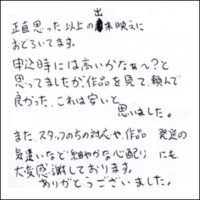 正直思った以上の出来映えに
おどろいてます。
申込時には高いかなぁ〜?と
思ってましたが、作品を見て、頼んで
良かった、これは安いと
思いました。
また、スタッフのちの対応や、作品 発送の
気遣いなど細やかな心配り にも
大変感謝しております。
ありがとうございました。